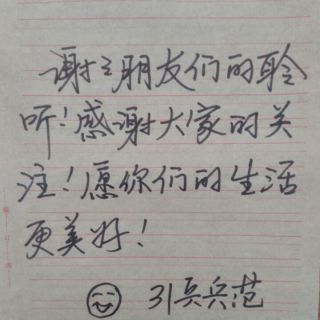 谢谢朋友们的聆
听！感谢大家的关
注！愿你们的生活
更美好！
31兵兵范